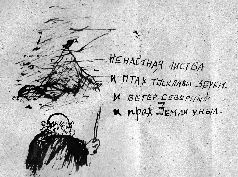 ненастная листва
и птах тусклавы звуки.
и ветер северный
и прах Земли уныл.